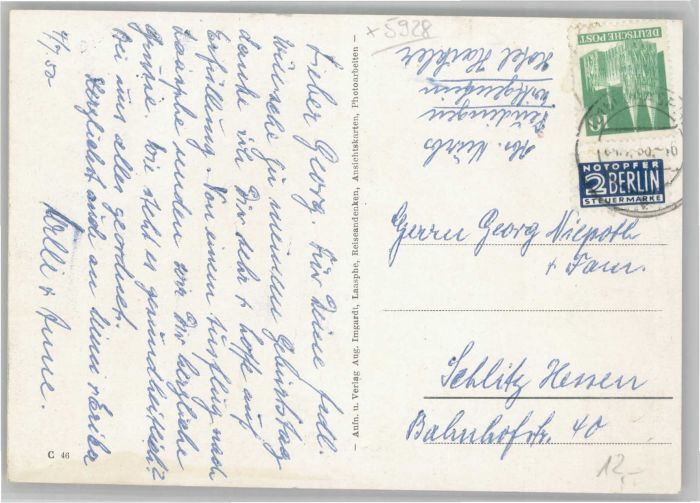 4/9 50
Lieber Georg. Für Deine frdl.
Wünsche zu meinem Geburtstag
danke ich Dir sehr + hoffe auf
Erfüllung. Von einem Ausflug nach
Laasphe senden wir Dir herzliche
Grüsse. Wie steht es gesundheitlich?
Bei uns alles geordnet.
Herzlichst auch an Deine
Willi + Anne.
C 46
— Aufn. u. Verlag Aug. Imgardt, Laasphe, Reiseandenken, Ansichtskarten, Photoarbeiten —
x 5928
Abs.
Wittgenstein
Hotel
DEUTSCHE POST
10
NOTOPFER
2 BERLIN
STEUERMARKE
Herrn Georg Niepoth
+ Fam.
Schlitz Hessen
Bahnhofstr. 40
12,-